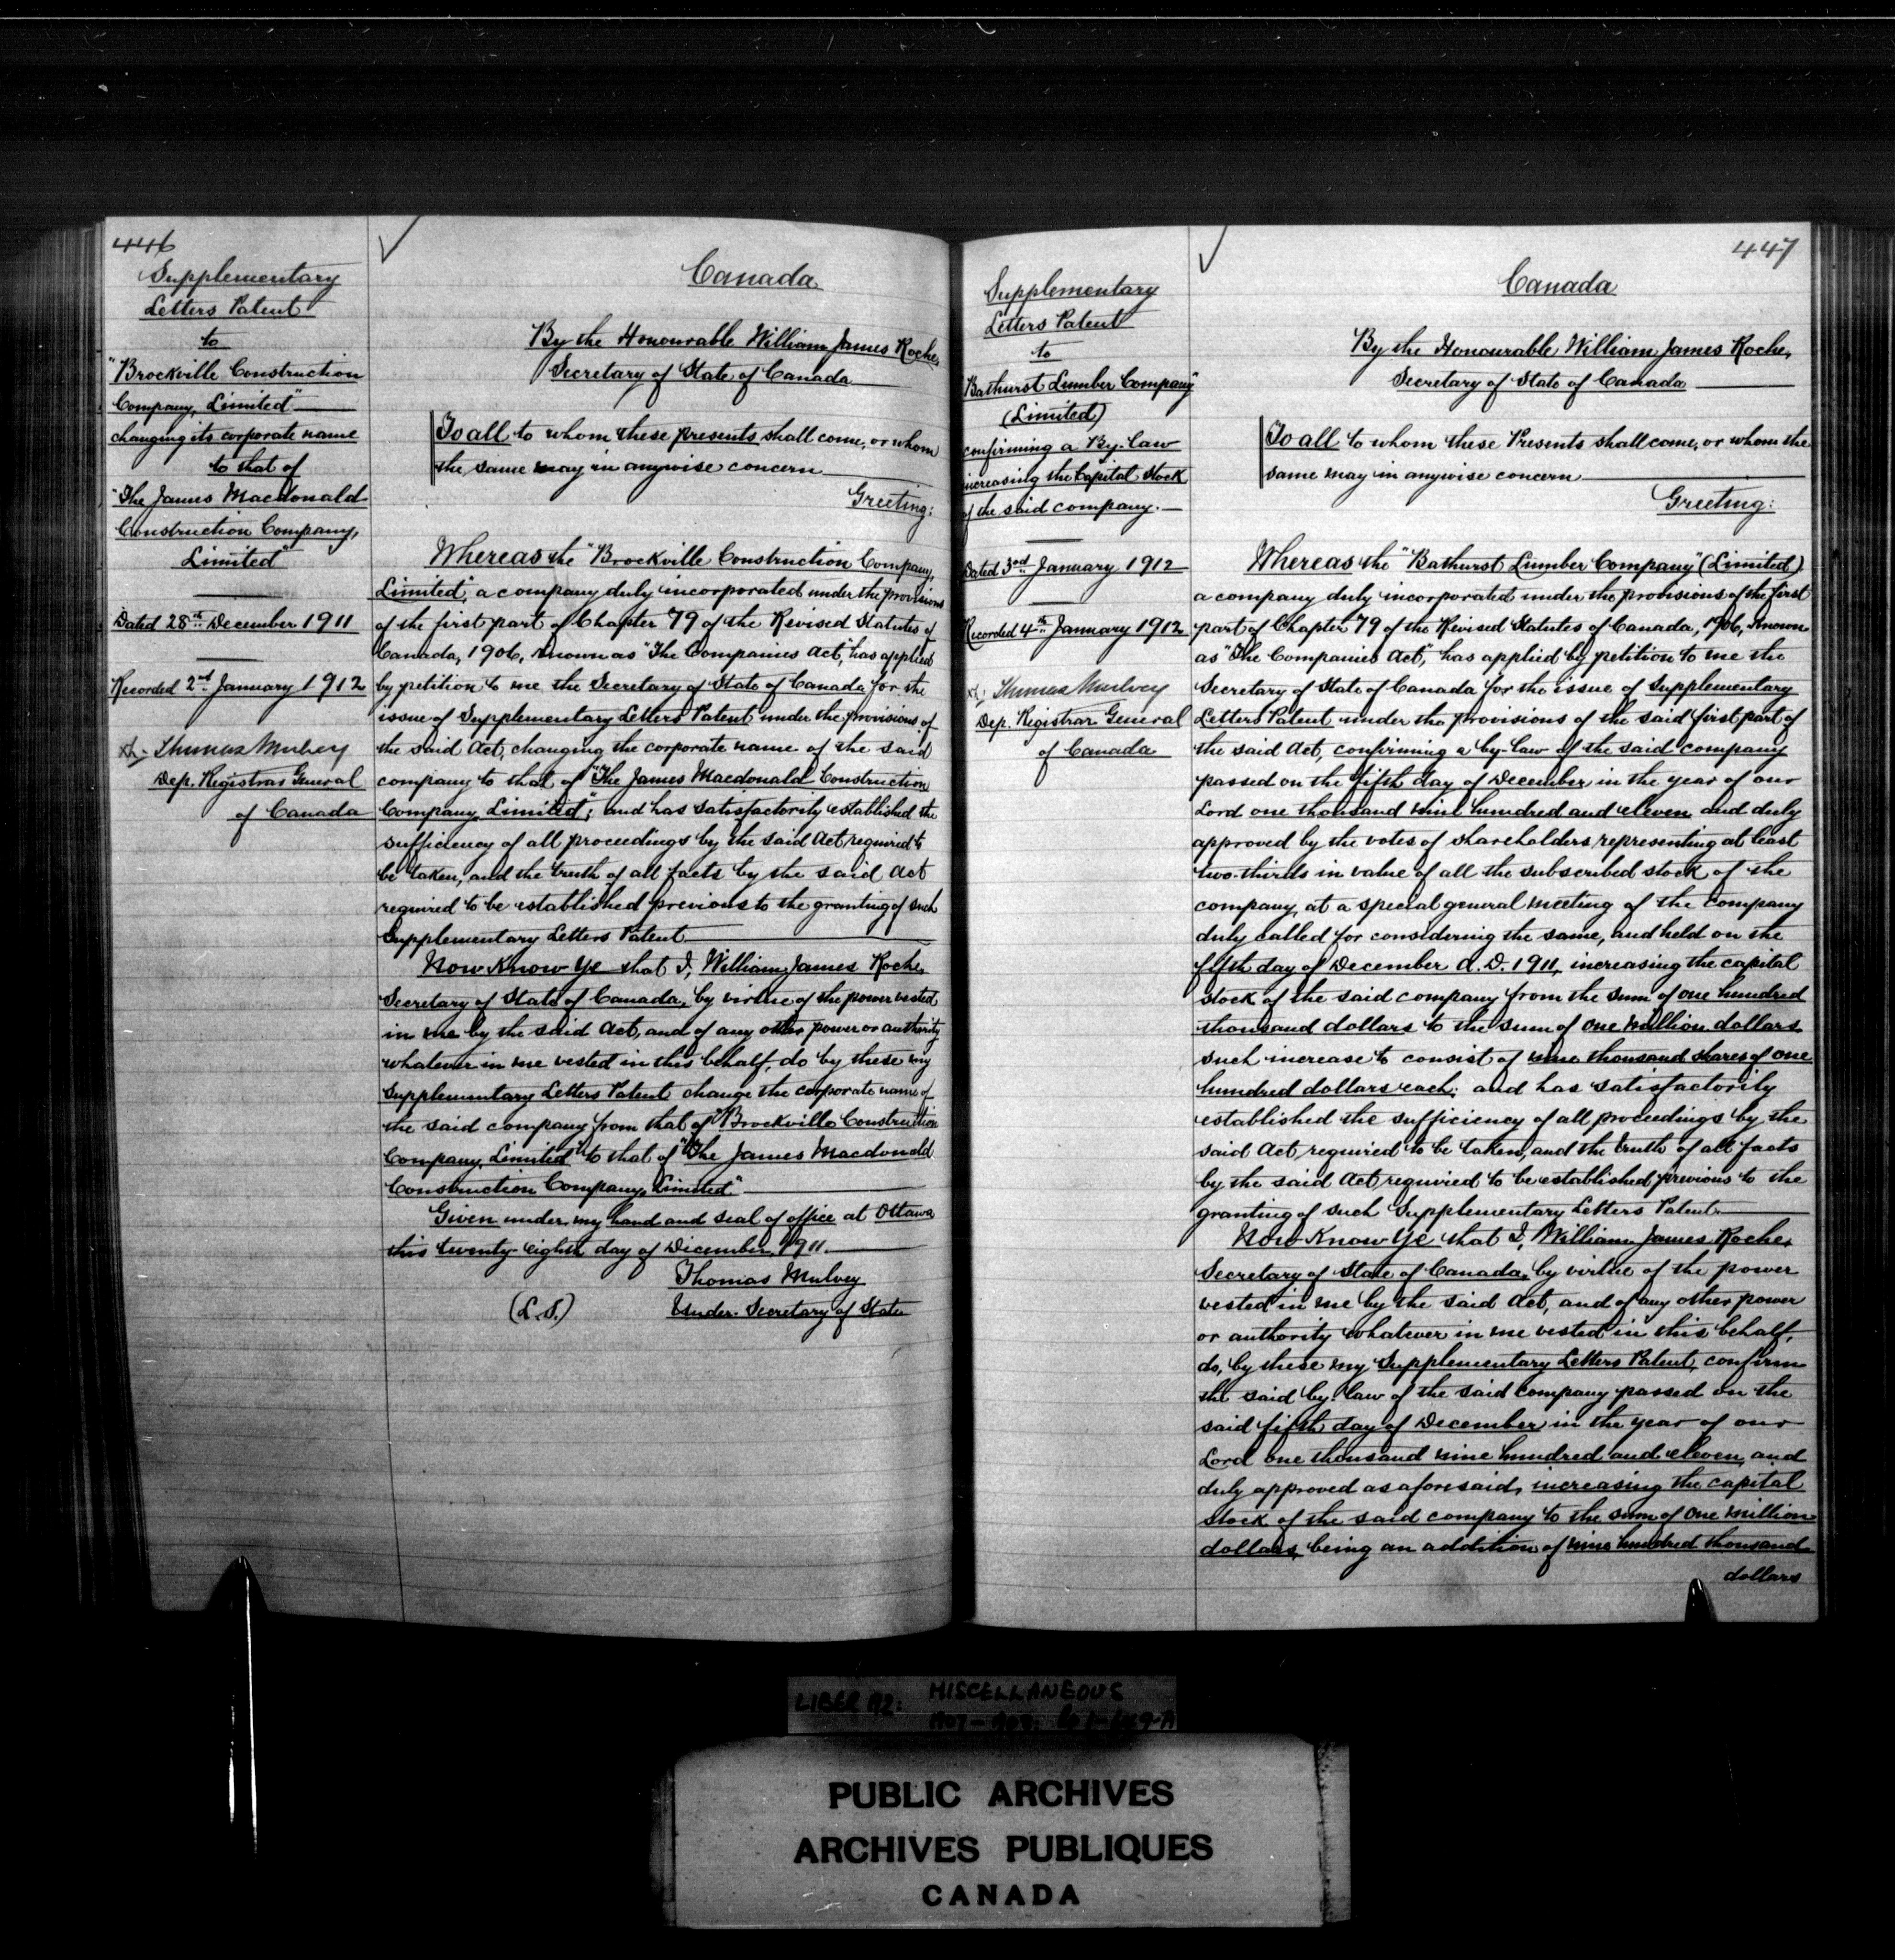 446
Supplementary
Letters Patent
to
"Brockville Construction
Company, Limited"
changing its corporate name
to that of
"The James Macdonald
Construction Company,
Limited"
Dated 28th December 1911
Recorded 2nd January 1912
Thomas Mulvey
Dep. Registrar General
of Canada
Canada
By the Honourable William James Roche,
Secretary of State of Canada
To all to whom these presents shall come, or whom
the same may in anywise concern
Greeting:
Whereas the "Brockville Construction Company,
Limited", a company duly incorporated under the provisions
of the first part of Chapter 79 of the Revised Statutes of
Canada, 1906, known as "The Companies Act," has applied
by petition to me the Secretary of State of Canada for the
issue of Supplementary Letters Patent under the provisions of
the said Act, changing the corporate name of the said
company to that of "The James Macdonald Construction
Company, Limited"; and has satisfactorily established the
sufficiency of all proceedings by the said Act required to
be taken, and the truth of all facts by the said Act
required to be established previous to the granting of such
Supplementary Letters Patent
Now Know Ye that I, William James Roche,
Secretary of State of Canada, by virtue of the power vested
in me by the said Act, and of any other power or authority
whatever in me vested in this behalf, do by these my
Supplementary Letters Patent change the corporate name of
the said company from that of "Brockville Construction
Company, Limited" to that of "The James Macdonald
Construction Company, Limited."
Given under my hand and seal of office at Ottawa
this twenty-eighth day of December, 1911.
Thomas Mulvey
(L.S.) Under-Secretary of State
447
Supplementary
Letters Patent
to
Bathurst Lumber Company"
(Limited)
confirming a By-law
increasing the Capital Stock
of the said company.
Dated 3rd January 1912
Recorded 4th January 1912
Thomas Mulvey
Dep. Registrar General
of Canada
Canada
By the Honourable William James Roche,
Secretary of State of Canada
To all to whom these Presents shall come, or whom the
same may in anywise concern
Greeting:
Whereas the "Bathurst Lumber Company" (Limited)
a company duly incorporated under the provisions of the first
part of Chapter 79 of the Revised Statutes of Canada, 1906, known
as "The Companies Act", has applied by petition to me the
Secretary of State of Canada for the issue of Supplementary
Letters Patent under the provisions of the said first part of
the said Act, confirming a by-law of the said company
passed on the fifth day of December in the year of our
Lord one thousand nine hundred and eleven and duly
approved by the votes of shareholders representing at least
two-thirds in value of all the subscribed stock of the
company, at a special general meeting of the company
duly called for considering the same, and held on the
fifth day of December A.D. 1911, increasing the capital
stock of the said company from the sum of one hundred
thousand dollars to the sum of one million dollars
such increase to consist of nine thousand shares of one
hundred dollars each; and has satisfactorily
established the sufficiency of all proceedings by the
said Act required to be taken, and the truth of all facts
by the said Act required to be established previous to the
granting of such Supplementary Letters Patent
Now Know Ye that I, William James Roche,
Secretary of State of Canada, by virtue of the power
vested in me by the said Act, and of any other power
or authority whatever in me vested in this behalf,
do, by these my Supplementary Letters Patent, confirm
the said by-law of the said company passed on the
said fifth day of December in the year of our
Lord one thousand nine hundred and eleven, and
duly approved as aforesaid, increasing the capital
stock of the said company to the sum of one million
dollars, being an addition of nine hundred thousand
dollars
LIBER 192: MISCELLANEOUS
PUBLIC ARCHIVES
ARCHIVES PUBLIQUES
CANADA